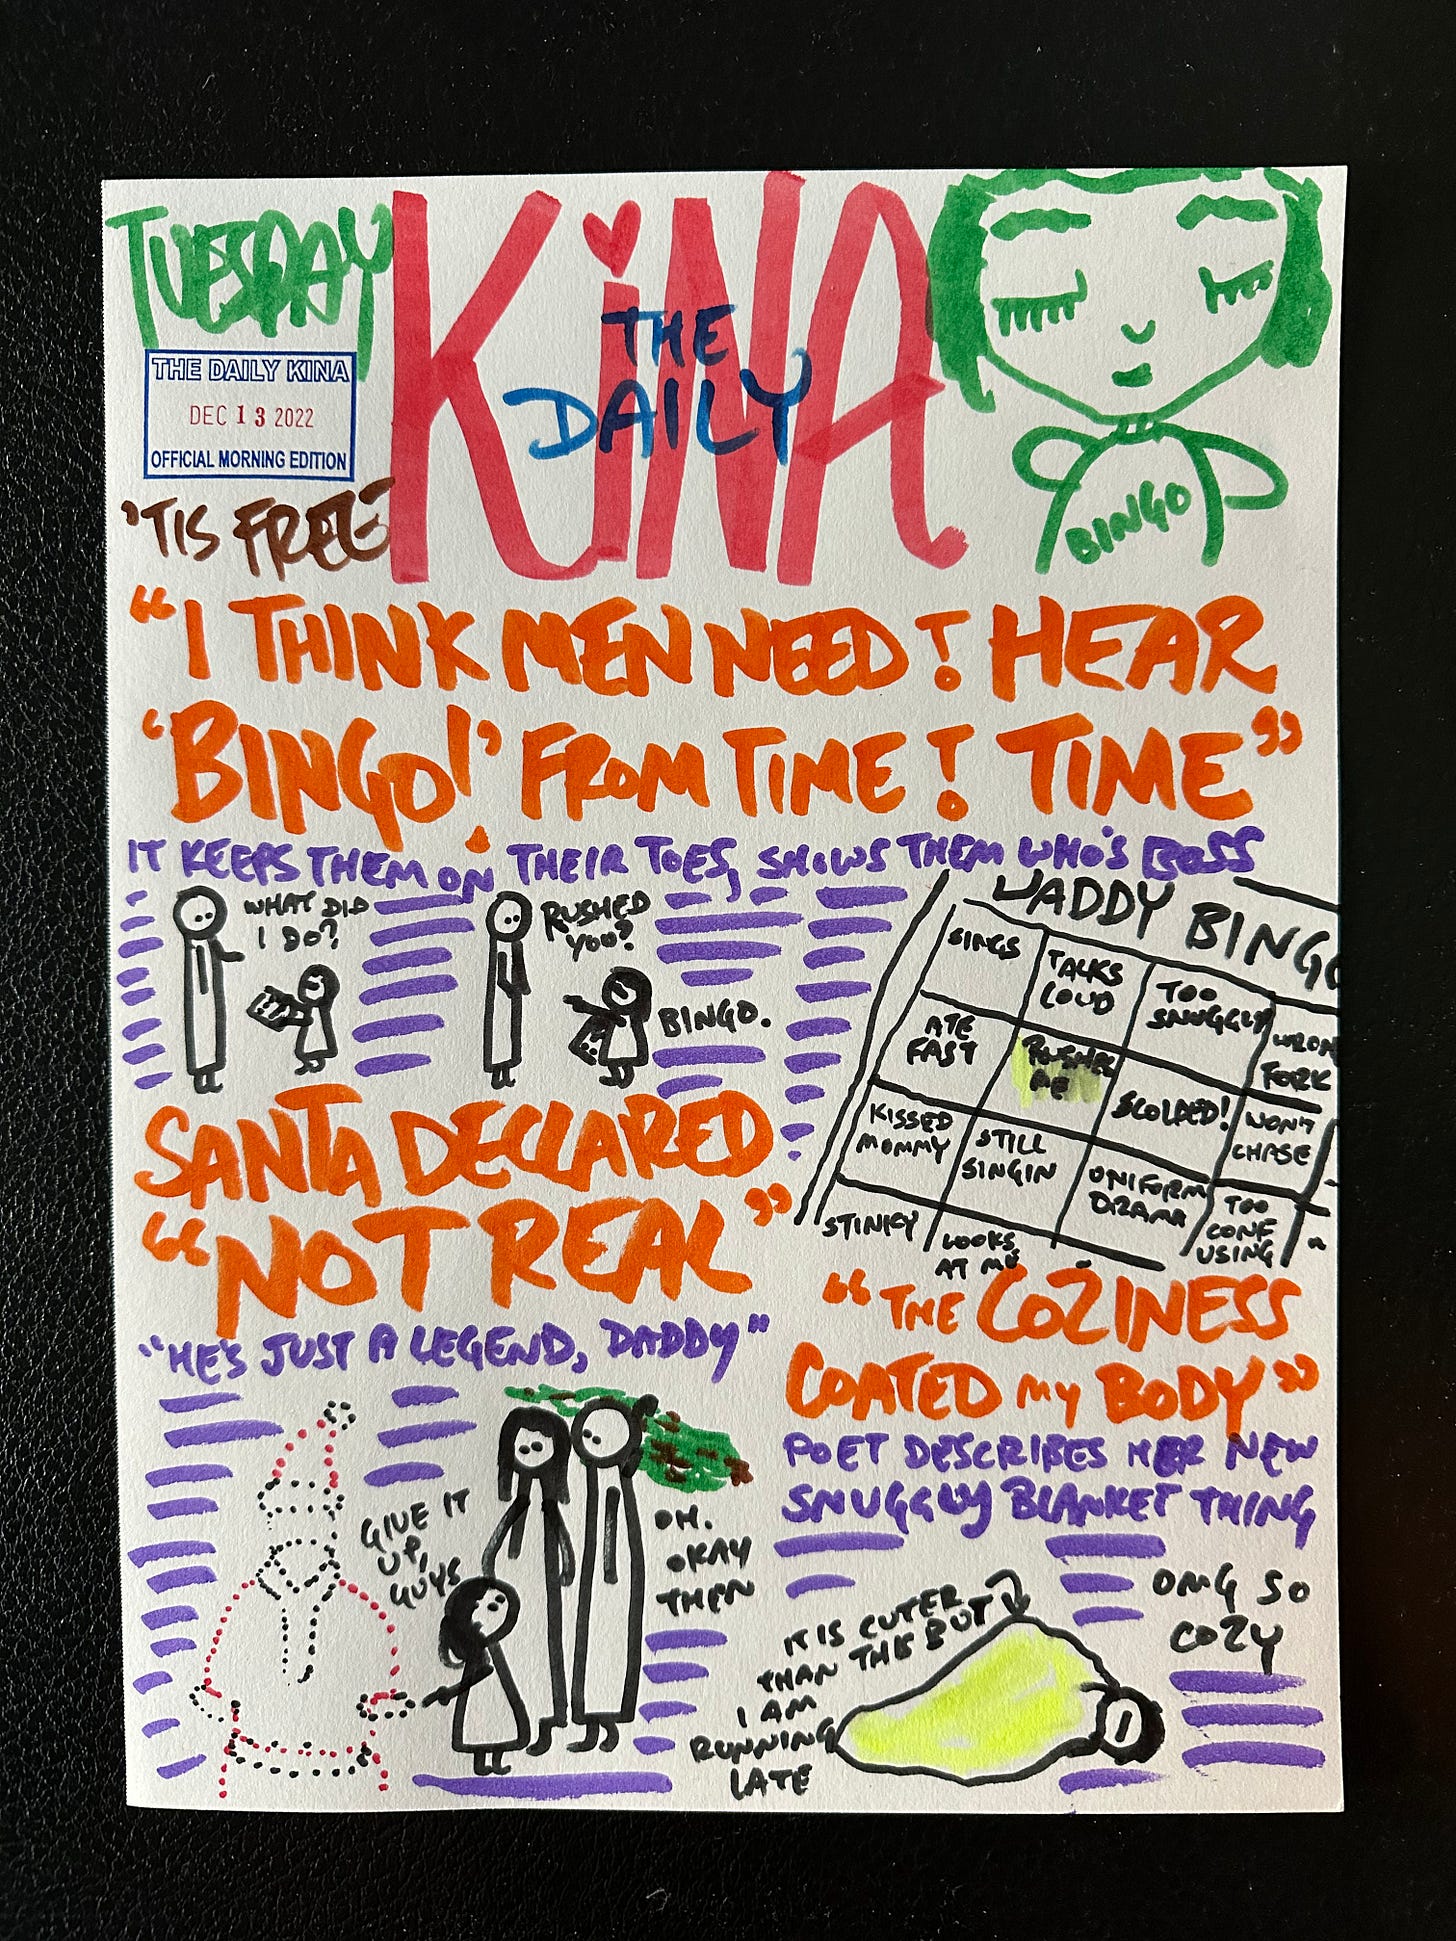 TUESDAY
KiNA
THE
DAILY
THE DAILY KINA
DEC 13 2022
OFFICIAL MORNING EDITION
'TIS FREE
BINGO
"I THINK MEN NEED T. HEAR
'BINGO!' FROM TIME T. TIME"
IT KEEPS THEM ON THEIR TOES, SHOWS THEM WHO'S BOSS
WHAT DID
I DO?
RUSHED
YOU?
BINGO.
DADDY BINGO
SINGS
TALKS
LOUD
TOO
SNUGGLY
WRONG
FORK
ATE
FAST
RUSHED
ME
SCOLDED!
WON'T
CHASE
KISSED
MOMMY
STILL
SINGIN
UNIFORM
DRAMA
TOO
CONF
USING
STINKY
LOOKS
AT ME
SANTA DECLARED
"NOT REAL"
"HE'S JUST A LEGEND, DADDY"
GIVE IT
UP,
GUYS
OH.
OKAY
THEN
"THE COZINESS
COATED MY BODY"
POET DESCRIBES HER NEW
SNUGGLY BLANKET THING
IT IS CUTER
THAN THIS BUT
I AM
RUNNING
LATE
OMG SO
COZY